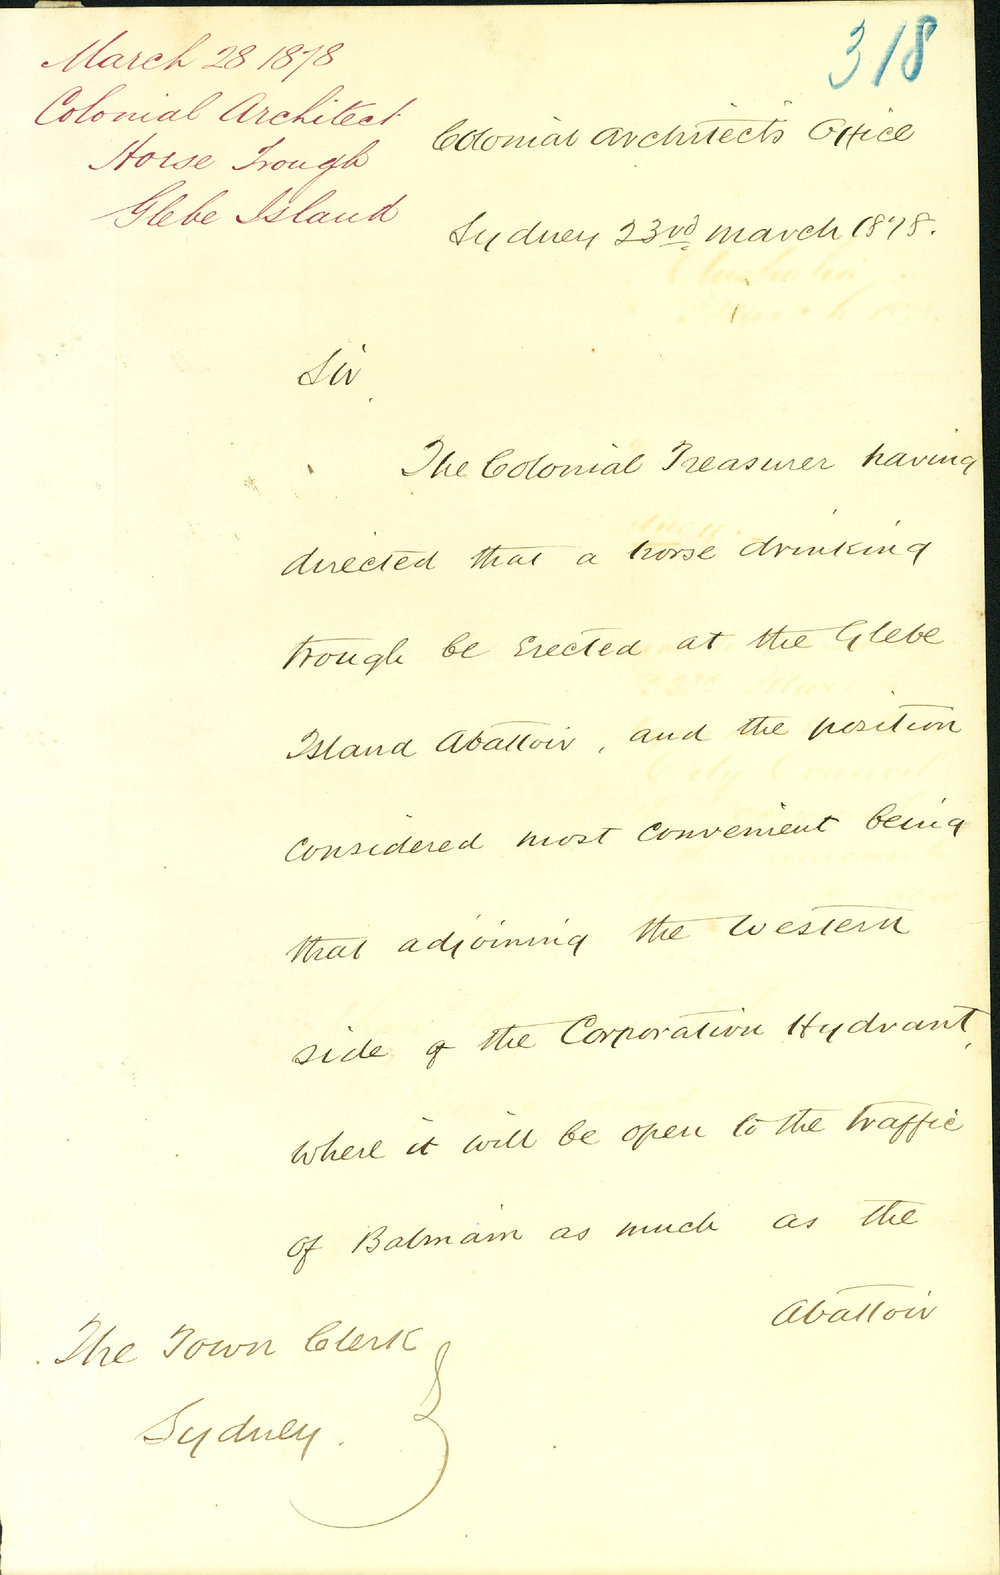 318
March 28 1878
Colonial Architect
Horse Trough
Glebe Island
Colonial Architect's Office
Sydney 23rd March 1878.
Sir
The Colonial Treasurer having
directed that a horse drinking
trough be Erected at the Glebe
Island Abattoir, and the position
considered most convenient being
that adjoining the Western
side of the Corporation Hydrant,
where it will be open to the traffic
of Balmain as much as the
Abattoir
The Town Clerk
Sydney.